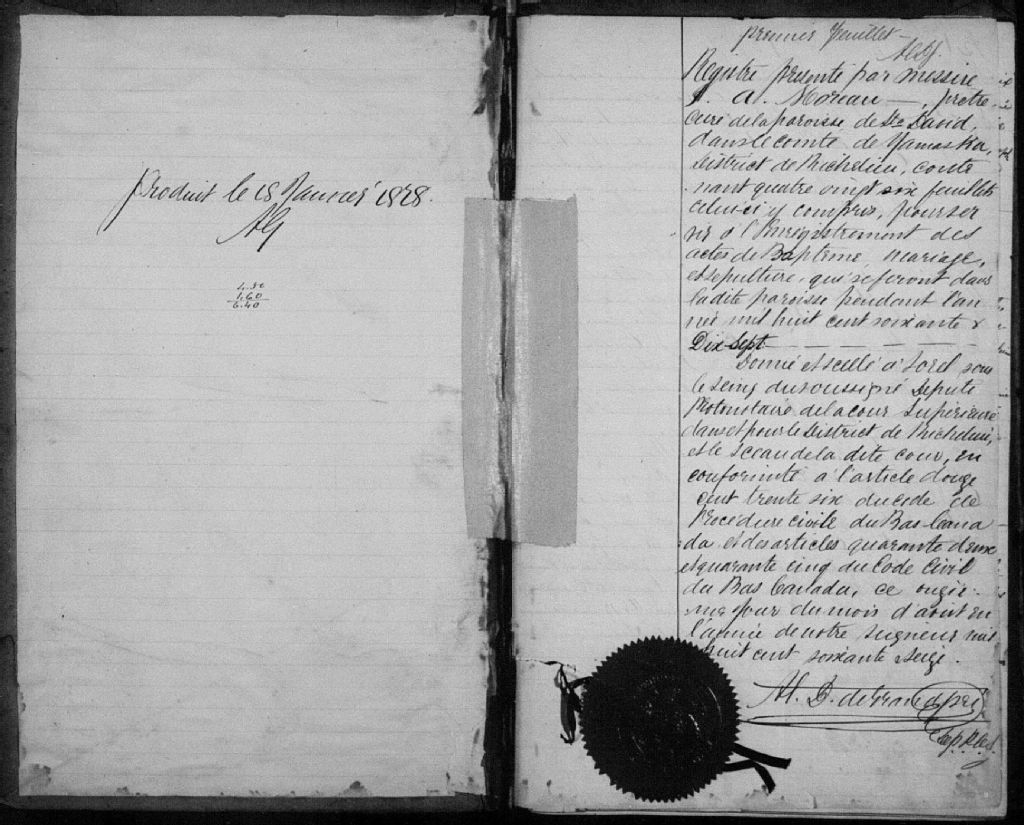 Produit le 18 Janvier 1878.
AG
4.80
1.60
6.40
premier feuillet
Registre présenté par messire
A. Moreau —, prêtre
curé de la paroisse de St David,
dans le comté de Yamaska,
District de Richelieu, conte
nant quatre vingt six feuillets
celui-ci y compris, pour ser
vir à l'Enregistrement des
actes de Baptême, mariage,
et sépulture, qui se feront dans
la dite paroisse pendant l'an
née mil huit cent soixante &
Dix Sept
Donné et scellé à Sorel sous
le seing du soussigné Député
Protonotaire de la cour Supérieure
dans et pour le District de Richelieu,
et le Sceau de la dite cour, en
conformité à l'article douze
cent trente six du code de
Procédure civile du Bas Cana
da et des articles quarante deux
et quarante cinq du Code Civil
du Bas Canada, ce onziè-
me jour du mois d'aout en
l'année de notre Seigneur mil
huit cent soixante Seize.
A. D. de Grandpré
Dep. P.C.S.